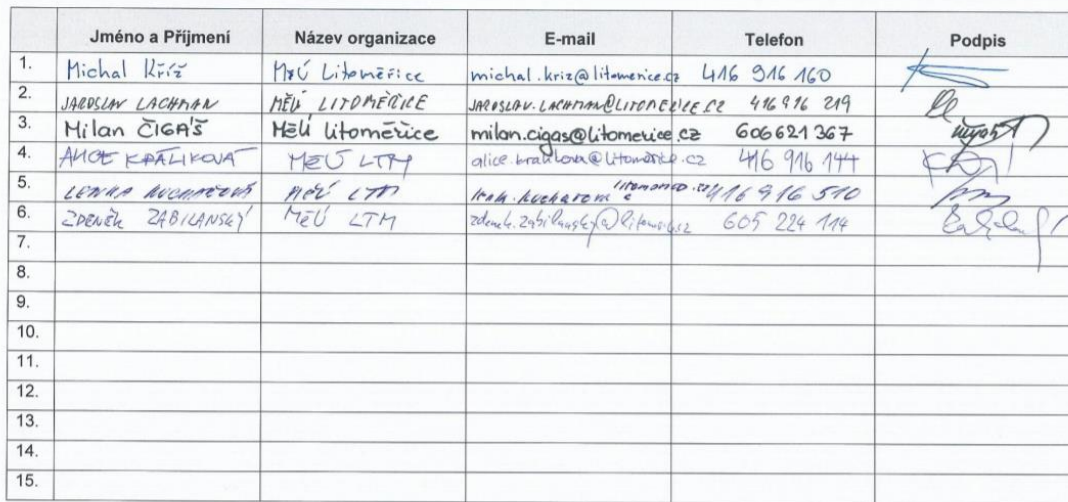 Jméno a Příjmení Název organizace E-mail Telefon Podpis
1. Michal Kříž MěÚ Litoměřice michal.kriz@litomerice.cz 416 916 160
2. JAROSLAV LACHMAN MĚÚ LITOMĚŘICE JAROSLAV.LACHMAN@LITOMERICE.CZ 416 916 219
3. Milan ČIGÁŠ MěÚ Litoměřice milan.cigas@litomerice.cz 606621367
4. ALICE KRÁLIKOVÁ MěÚ LTM alice.kralikova@litomerice.cz 416 916 144
5. LENKA MěÚ LTM 416 916 510
6. ZDENĚK ZABILANSKÝ MěÚ LTM zdenek.zabilansky@litomerice.cz 605 224 114
7.
8.
9.
10.
11.
12.
13.
14.
15.